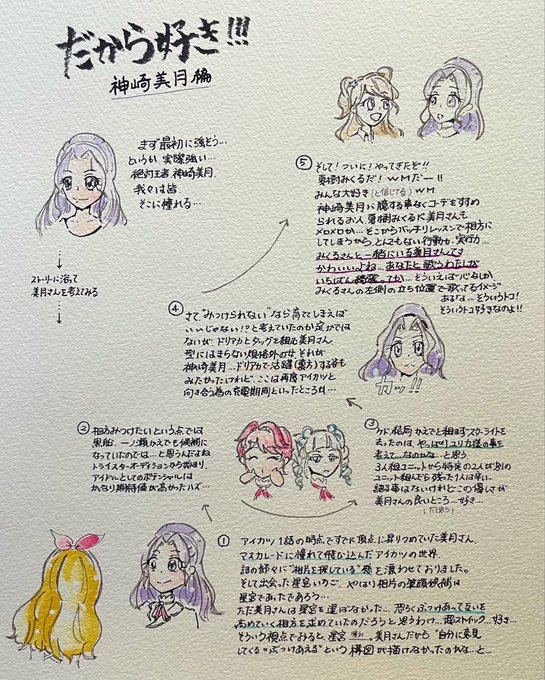 だから好き!!!
神崎美月編
まず最初に強そう…
というか実際強い…
絶対王者 神崎美月
我々は皆
そこに憧れる…
ストーリーに沿って
美月さんを考えてみる
①
アイカツ1話の時点ですでに頂点に昇りつめていた美月さん。
マスカレードに憧れて飛び込んだアイカツの世界
話の節々に"相方を探している"発を漂わせておりました。
そして出会った星宮いちご、やはり相方の筆頭候補は
星宮であったであろう…
ただ美月さんは星宮を選ばなかった…恐らくぶつけあって互いを
高めていく相方を求めていたのだろうと思うわけ…超ストイック…好き…
そういう視点でみると、星宮
美月さんだから"自分に意見
してくる=ぶつけあえる"という構図が描けなかったのかな…と…
②
相方みつけたいという点では
黒船、一ノ瀬かえでも候補に
なっていたのでは…と思うんだよね
トライスターオーディションから始まり、
アイドルとしてのポテンシャルは
かなり期待値が高かったハズ…
③
けど結局かえでと組まずスターライトを
去ったのは、やっぱりユリカ様の事を
考えて…なのかな…と思う
3人組ユニットから特定の2人が別の
ユニット組んでも残った1人は辛い
語る事はないけれどこの優しさが
美月さんの良いところ…好き…
(だと思う)
④
さて"みつけられない"なら育ててしまえば
いいじゃない!?と考えていたのか定かでは
ないが、ドリアカとタッグを組む美月さん
型にはまらない規格外の女 それが
神崎美月…ドリアカで活躍(裏方)する姿も
みたかったけれど、ここは再度アイカツと
向き合う為の充電期間といったところね…
カッ!!
⑤
そして!ついに!やってきたぞ!!
夏樹みくるだ!WMだー!!
みんな大好き(と信じてる)WM
神崎美月に臆する事なくコーデをすすめ
られるお人 夏樹みくるに美月さんも
メロメロか…そこからバッチリレッスンで相方に
してしまうから、とんでもない行動力、実行力…
みくるさんと一緒にいる美月さんって
かわいいよね…あなたと歌うわたしが
いちばん綺麗ってか…そういえば心なしか
みくるさんの左側の立ち位置で歌ってるイメージ
あるな…そういうトコ!
そういうトコ好きなのよ!!